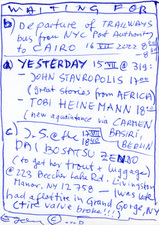 WAITING FOR
b) Departure of TRAILWAYS
bus from NYC Port Authority
to CAIRO 16 VII 2022 @
a) YESTERDAY 15 VII @ 319:
- JOHN STAVROPOLIS 17
(great stories from AFRICA)
- TOBI HEINEMANN 18
(new aquaintance via CARMEN
c) J.S. @ the 17 VII BASIRI
BERLIN
DAI BOSATSU ZENDO
(to get her trunk + luggage)
@ 223 Beecher Lake Rd., Livingston
Manor, NY 12758 - I was late
had a flat tire in Grand Gorge, NY
(tire valve broke!!!)